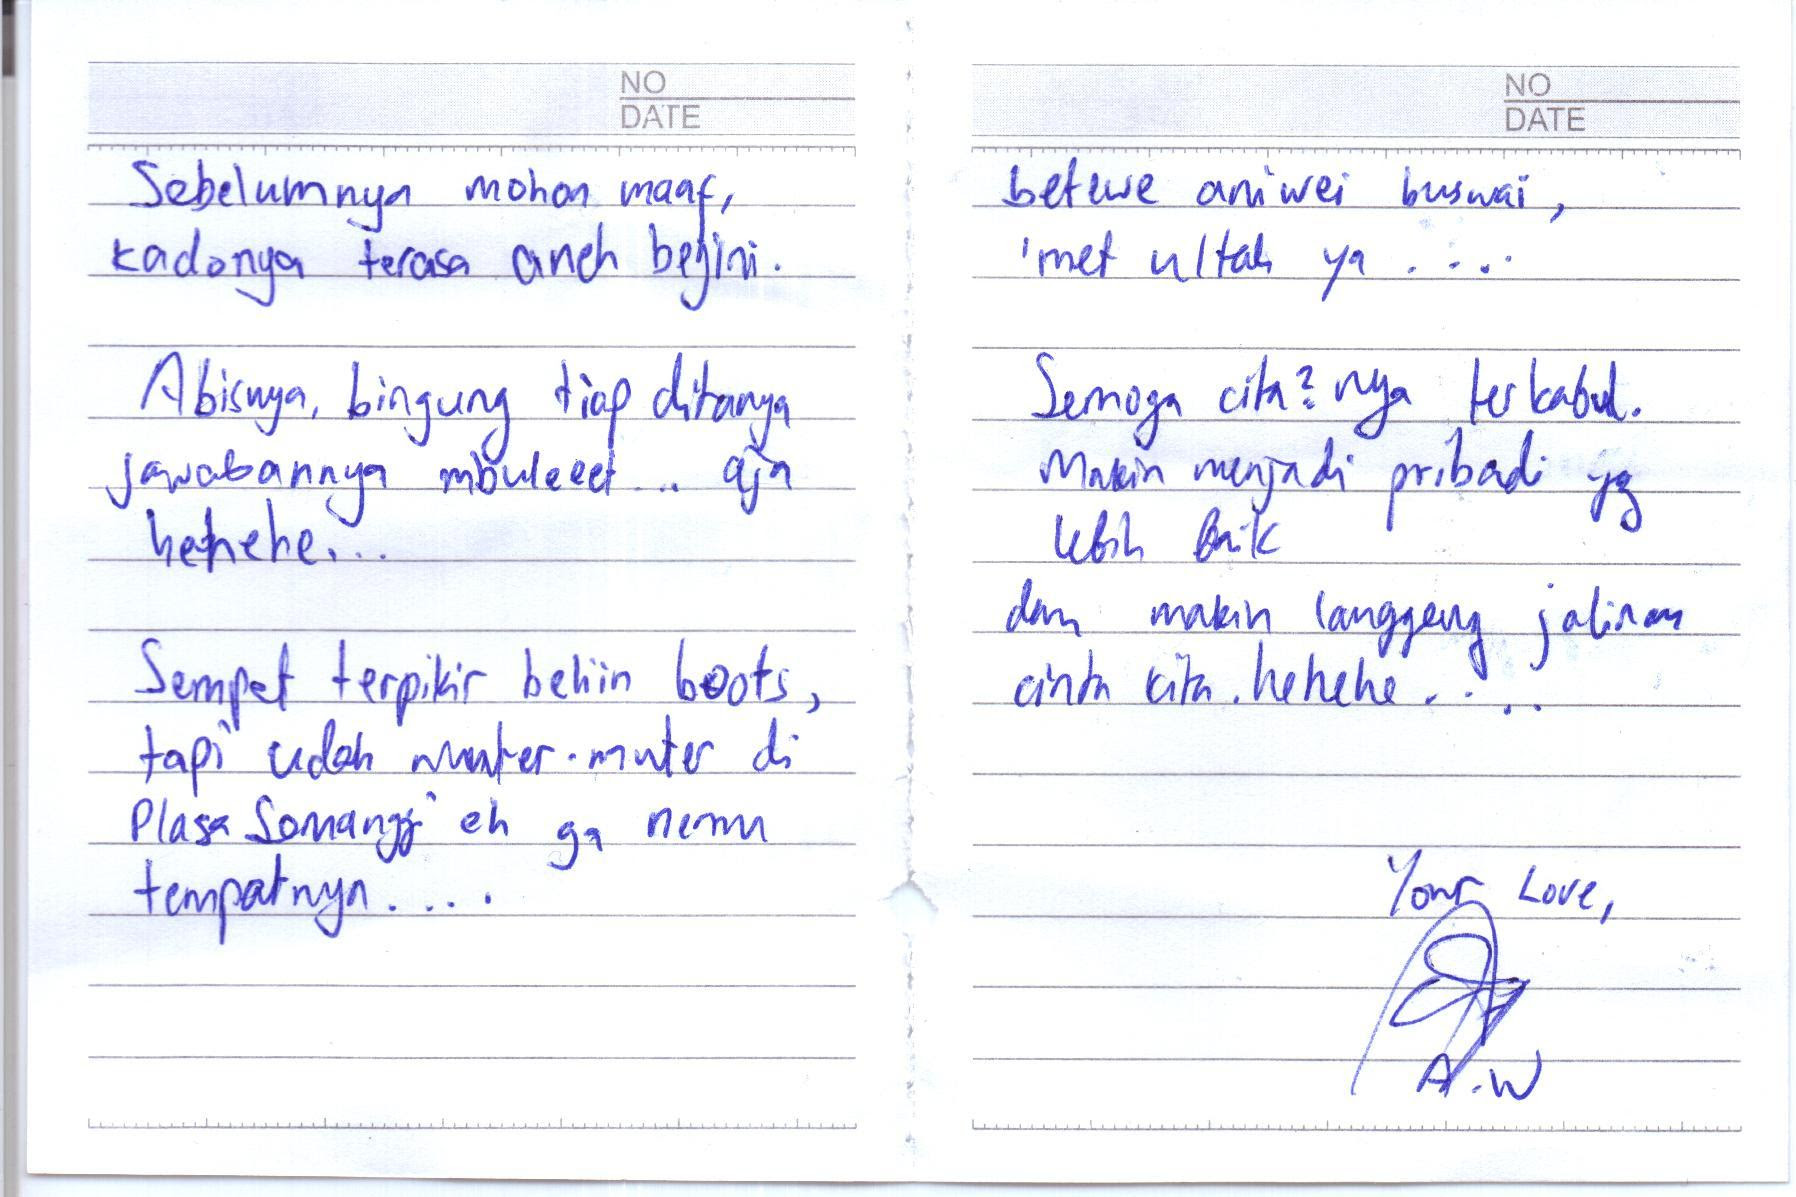 NO
DATE
Sebelumnya mohon maaf,
kadonya terasa aneh begini.
Abisnya, bingung tiap ditanya
jawabannya mbuleeet... aja
hehehe...
Sempet terpikir beliin boots,
tapi udah muter-muter di
Plasa Semanggi eh ga nemu
tempatnya....
NO
DATE
betewe aniwei buswai,
'met ultah ya ....
Semoga cita2nya terkabul.
Makin menjadi pribadi yg
lebih baik
dan makin langgeng jalinan
cinta kita. hehehe....
Your Love,
A.W